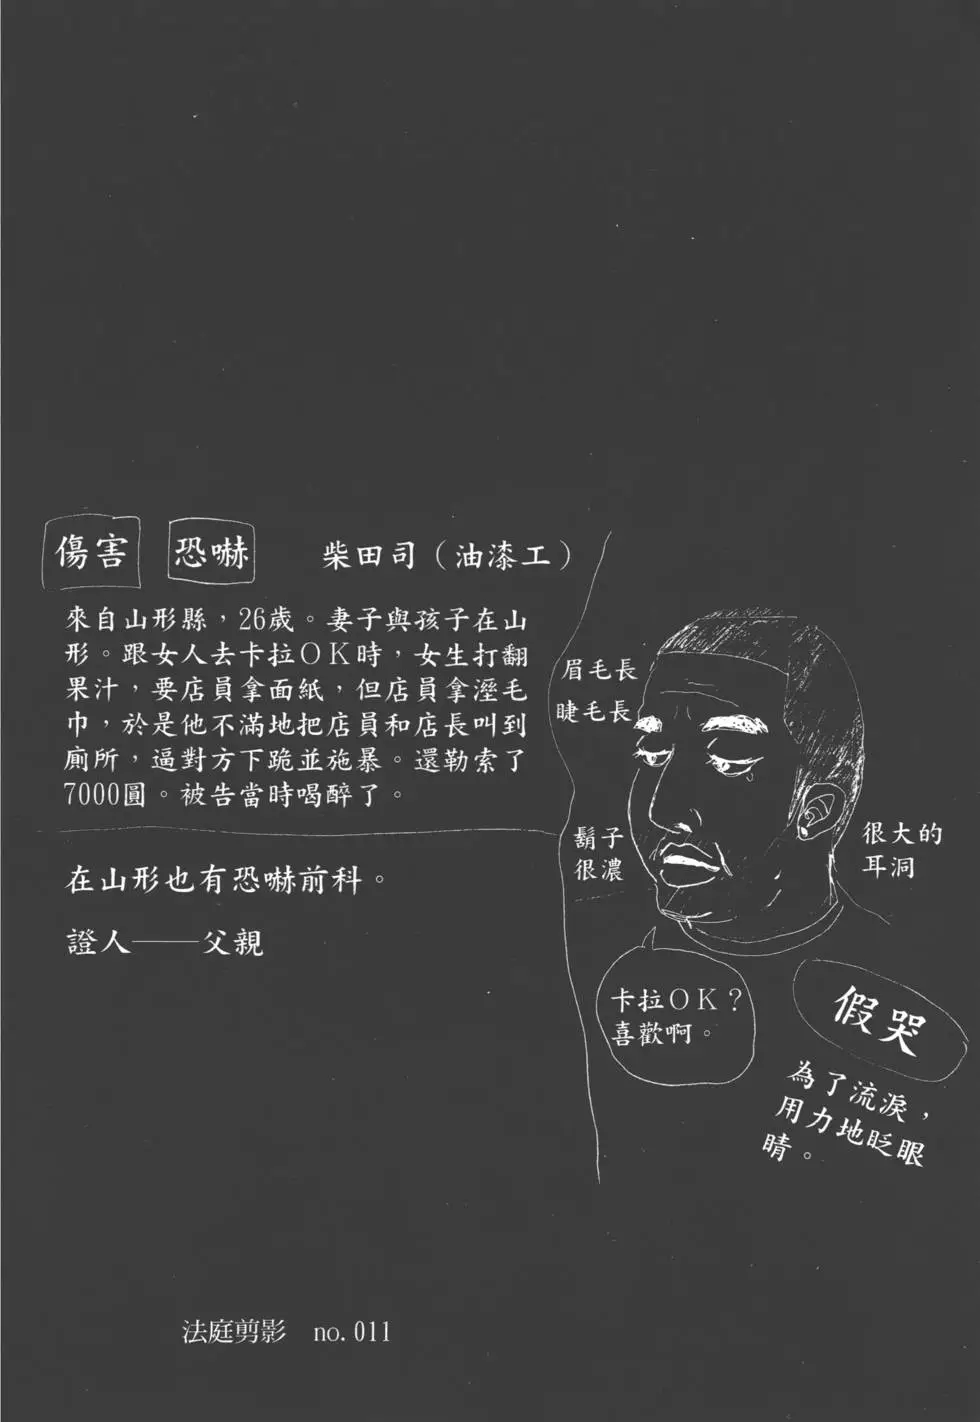 傷害 恐嚇 柴田司（油漆工）
來自山形縣，26歲。妻子與孩子在山
形。跟女人去卡拉ＯＫ時，女生打翻
果汁，要店員拿面紙，但店員拿溼毛
巾，於是他不滿地把店員和店長叫到
廁所，逼對方下跪並施暴。還勒索了
7000圓。被告當時喝醉了。
在山形也有恐嚇前科。
證人──父親
眉毛長
睫毛長
鬍子
很濃
很大的
耳洞
卡拉ＯＫ？
喜歡啊。
假哭
為了流淚，
用力地眨眼
睛。
法庭剪影 no.011